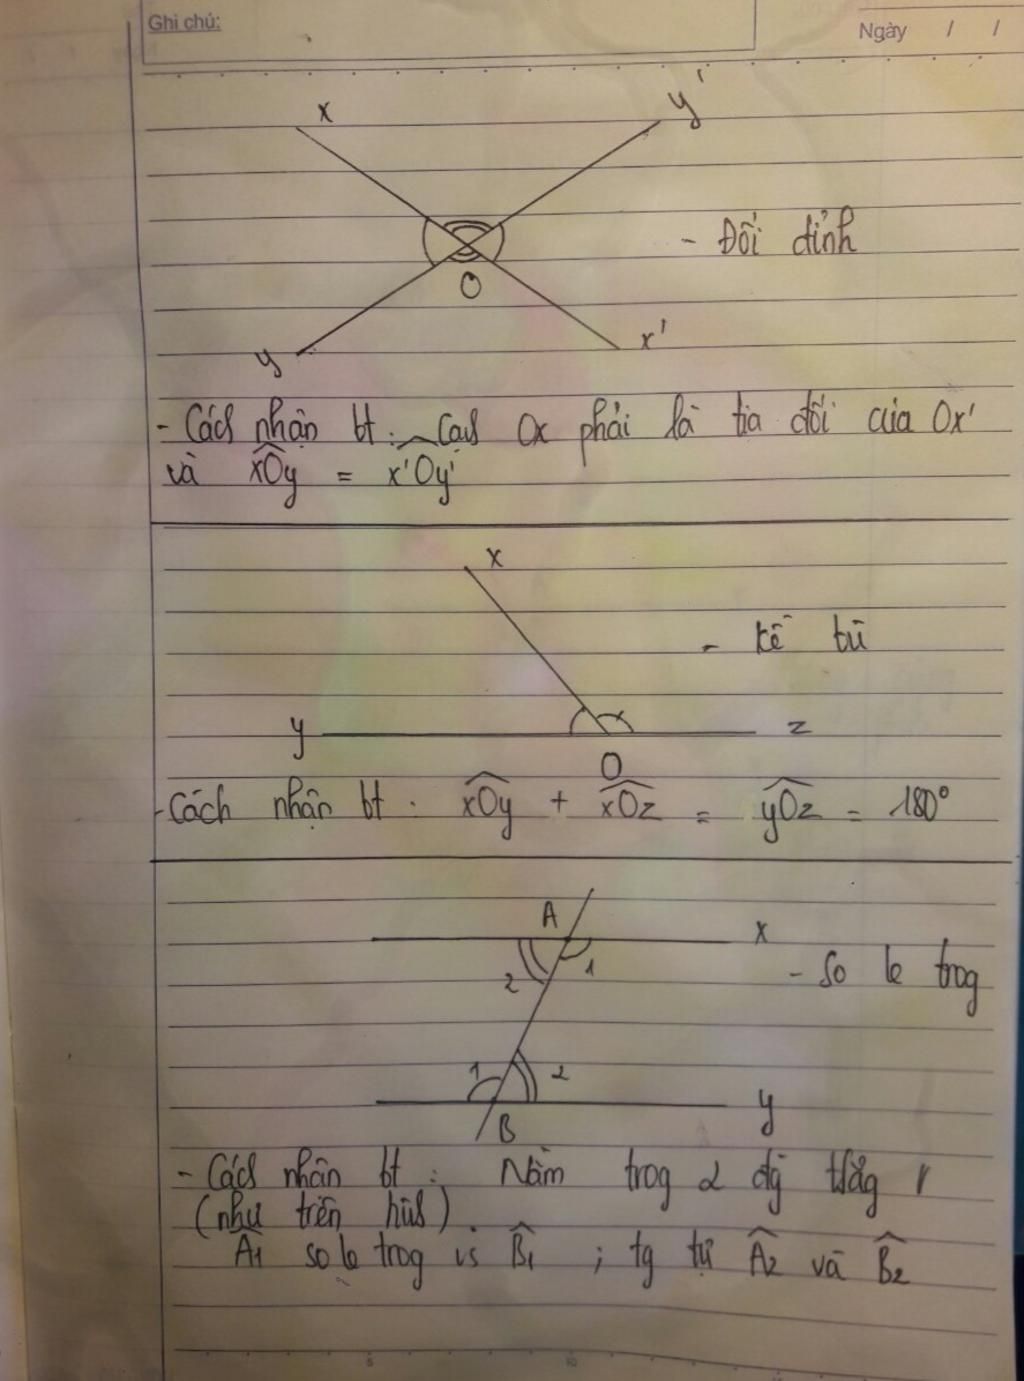 Ghi chú:
Ngày / /
x
y'
- Đối đỉnh
O
y
x'
- Cách nhận bt : Cạnh Ox phải là tia đối của Ox'
và xOy = x'Oy'
x
- kề bù
y
z
O
- Cách nhận bt : xOy + xOz = yOz = 180°
A
x
1
2
- So le trog
1
2
y
B
- Cách nhận bt : Nằm trog 2 đg thẳg //
(như trên hình).
A1 so le trog vs B1 ; tg tự A2 và B2
5
10